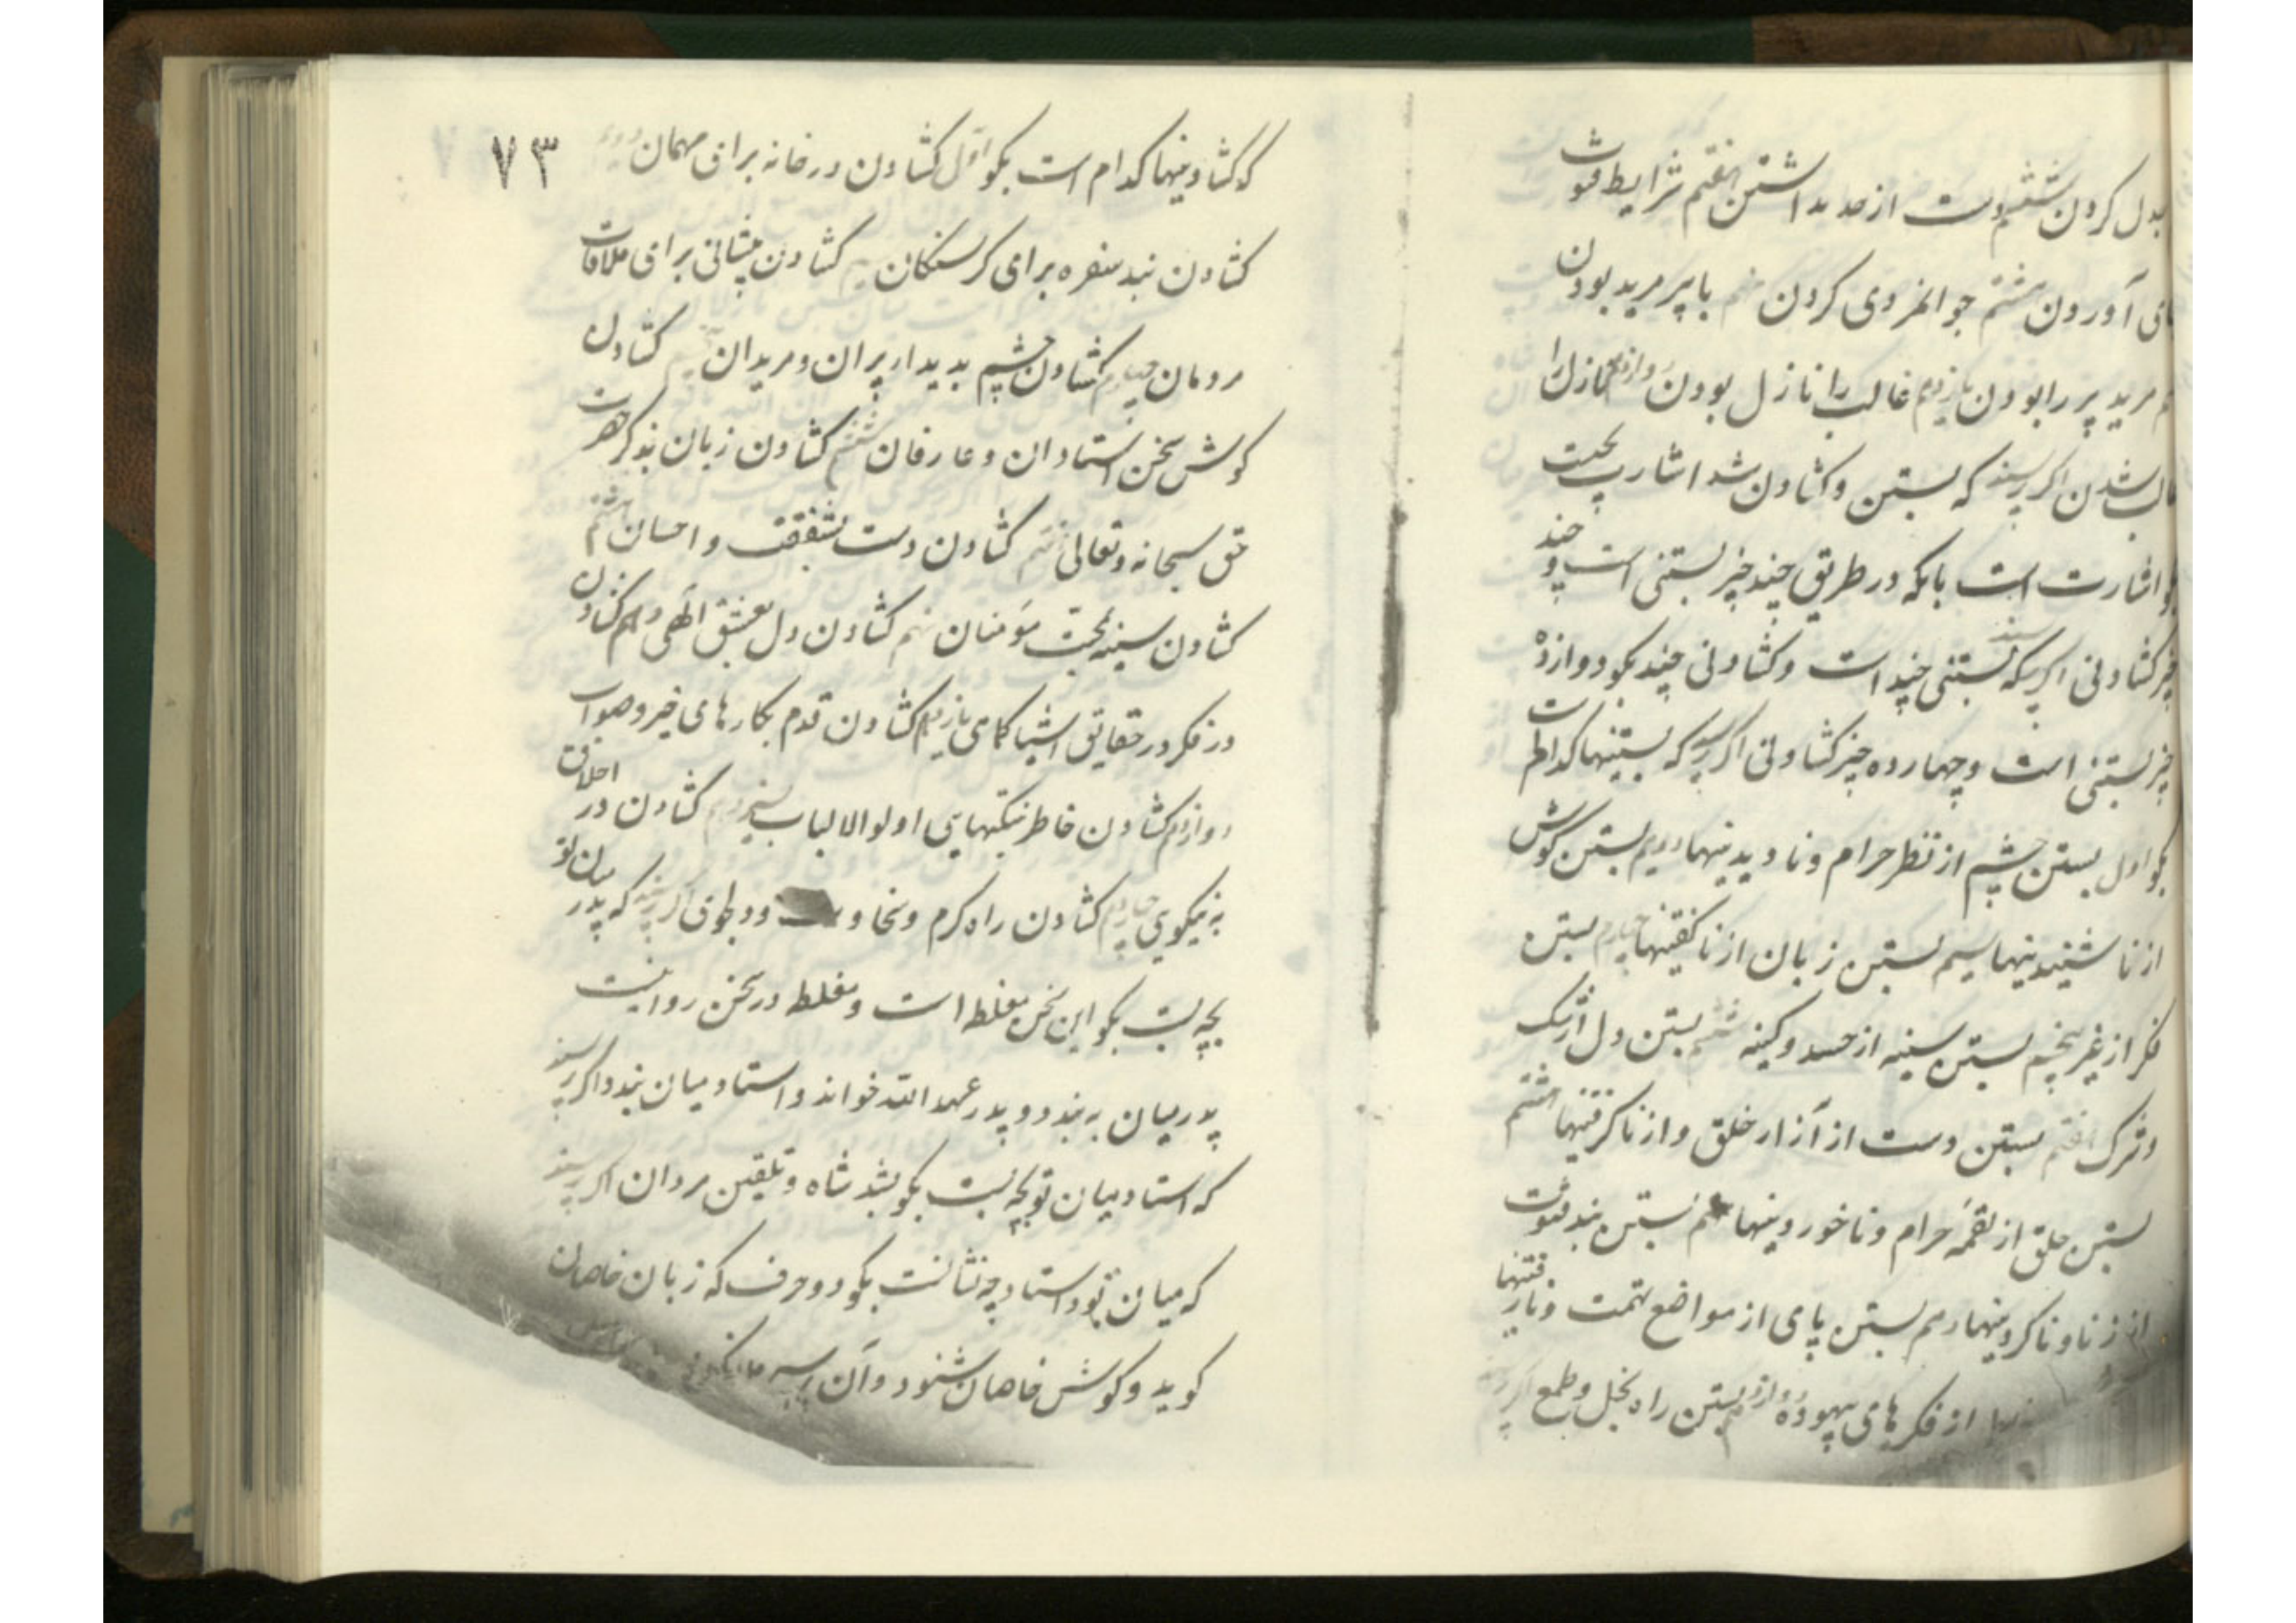 بدل کردن ششم دست از مدد داشتن هفتم شرایط فتوت
آوردن هشتم جوانمردی کردن نهم با پیر مرید بودن
مرید پیر را بودن یازدهم غالب را نازل بودن دوازدهم نازل را
شدن اگر پرسند که بستن و کشادن شد اشارت بچیست
اشارت است بانکه در طریق چند چیز بستنی است و چند
چیز کشادنی اگر پرسند که بستنی چند است و کشادنی چند بکو دوازده
چیز بستنی است و چهارده چیز کشادنی اگر پرسند که بستنیها کدام است
بکو اول بستن چشم از نظر حرام و نادیدنیها دویم بستن کوش
از ناشنیدنیها سیم بستن زبان از ناکفتنیها چهارم بستن
فکر از غیر پنجم بستن سینه از حسد و کینه ششم بستن دل از شک
و شرک هفتم بستن دست از آزار خلق و از ناکرفتنیها هشتم
بستن حلق از لقمه حرام و ناخوردنیها نهم بستن بند شهوت
از زنا و ناکردنیها دهم بستن پای از مواضع تهمت و نارفتنیها
از فکرهای بیهوده دوازدهم بستن راه بخل و طمع اگر پرسند
۷۳
که کشادنیها کدام است بکو اول کشادن در خانه برای مهمان دویم
کشادن بند سفره برای کرسنکان سیم کشادن پیشانی برای ملاقات
مردمان چهارم کشادن چشم بدیدار پیران و مریدان پنجم کشادن
کوش بسخن استادان و عارفان ششم کشادن زبان بذکر حضرت
حق سبحانه و تعالی هفتم کشادن دست بشفقت و احسان هشتم
کشادن سینه بمحبت مؤمنان نهم کشادن دل بعشق الهی دهم کشادن
در فکر در حقایق اشیا کماهی یازدهم کشادن قدم بکارهای خیر و صواب
دوازدهم کشادن خاطر بنکتهای اولوالالباب سیزدهم کشادن در اخلاق
به نیکویی چهاردهم کشادن راه کرم و سخاوت و دلجوی اگر پرسند که پدر میان تو
بچه بست بکو این سخن مغلطه است و مغلطه در سخن روا نیست
پدر میان به بندد و پدر عهد الله خواند و استاد میان بندد اگر پرسند
که استاد میان تو بچه بست بکو بشد شاه و تلقین مردان اگر پرسند
که میان تو و استاد چه نشانست بکو دو حرف که زبان خاصان
کوید و کوش خاصان شنود و آن